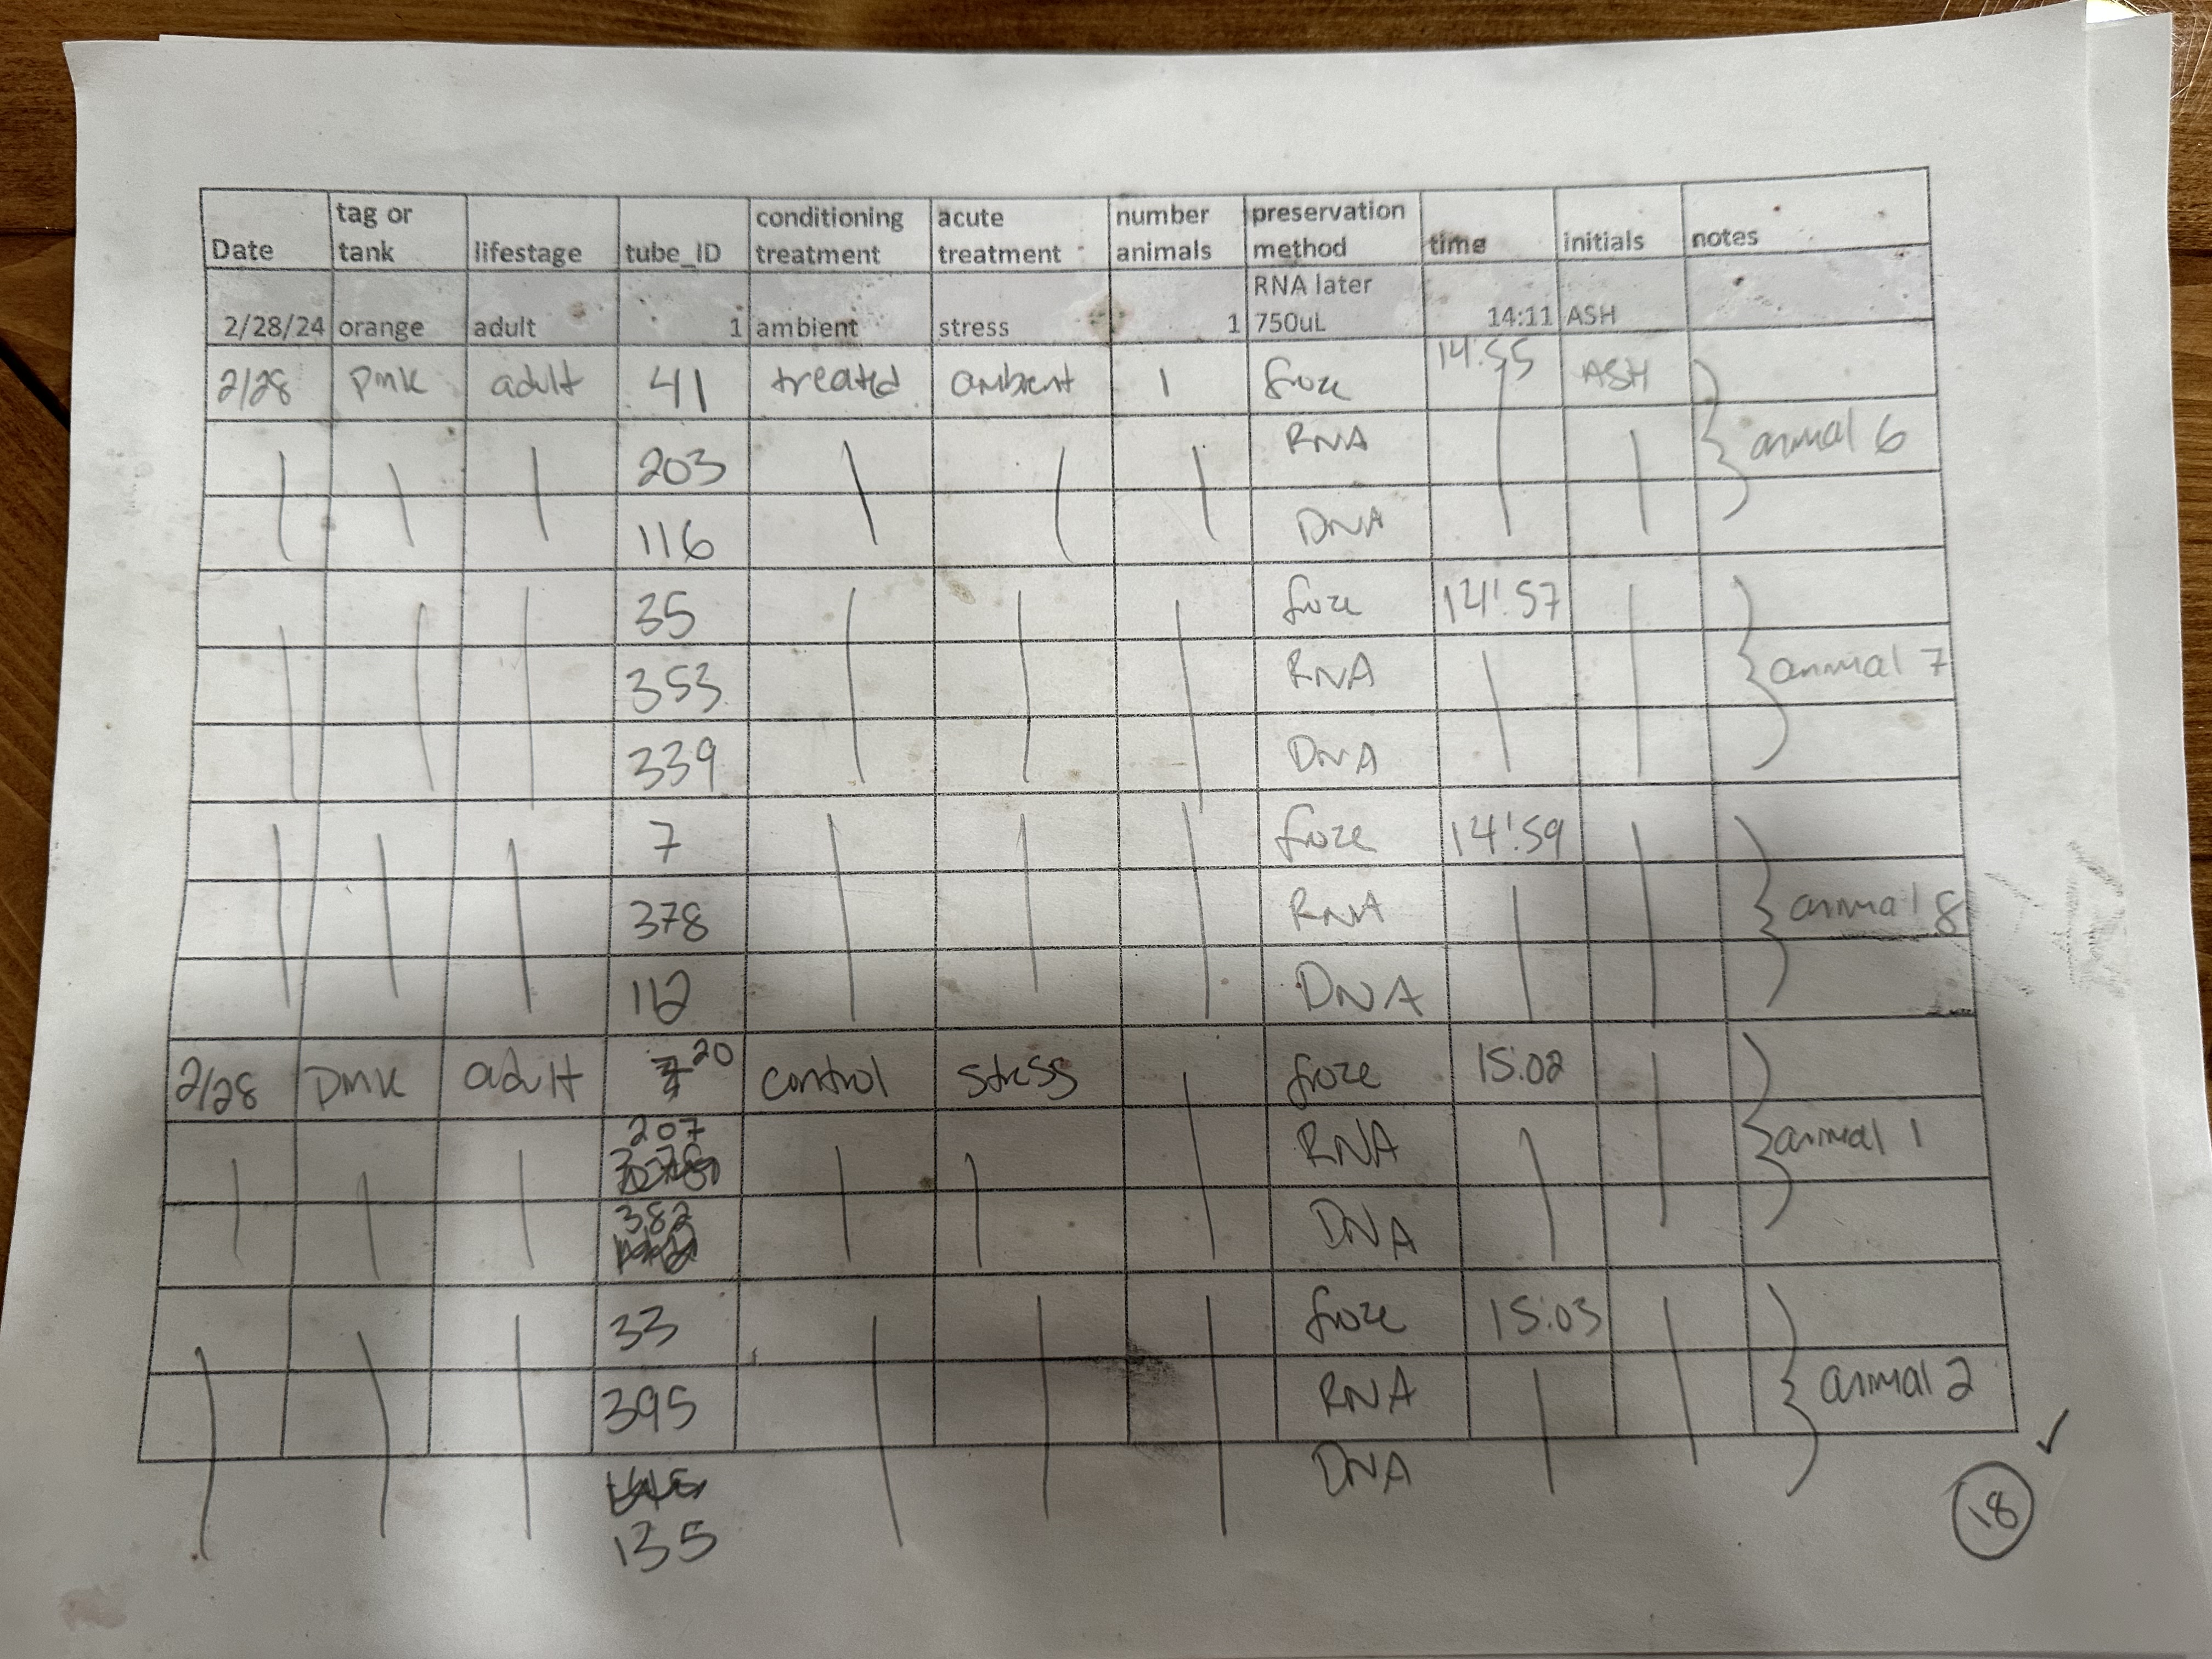 Date tag or tank lifestage tube_ID conditioning treatment acute treatment number animals preservation method time initials notes
2/28/24 orange adult 1 ambient stress 1 RNA later 750uL 14:11 ASH
2/28 pink adult 41 treated ambient 1 froze 14:55 ASH
203 RNA } animal 6
116 DNA
35 froze 14:57
353 RNA } animal 7
339 DNA
7 froze 14:59
378 RNA } animal 8
112 DNA
2/28 pink adult 20 control stress froze 15:02
207 RNA } animal 1
382 DNA
33 froze 15:03
395 RNA } animal 2
135 DNA
18 ✓